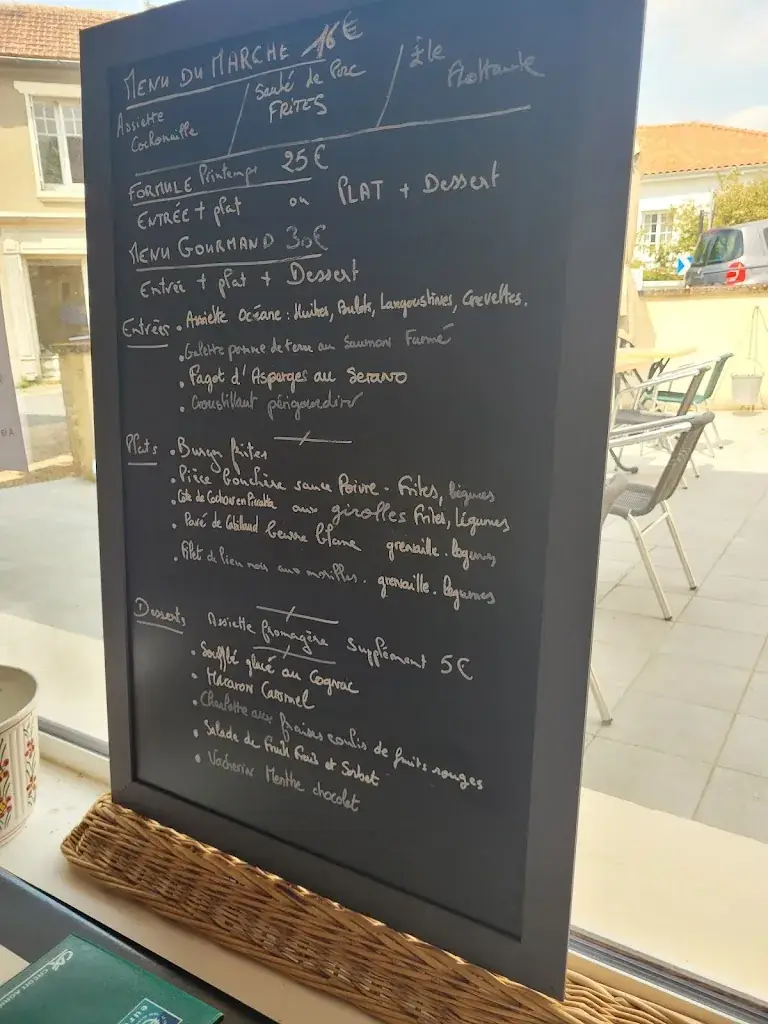 MENU DU MARCHE 16€
Assiette Cochonaille / Sauté de Porc FRITES / île flottante
FORMULE Printemps 25€
ENTRÉE + plat ou PLAT + Dessert
MENU GOURMAND 30€
Entrée + plat + Dessert
Entrées • Assiette Océane : Huitres, Bulots, Langoustines, Crevettes.
• Galette pomme de terre au Saumon Fumé
• Fagot d'Asperges au Serano
• Croustillant périgourdin
Plats • Burger frites
• Pièce bouchère sauce Poivre - Frites, légumes
• Côte de Cochon en Piccata aux girolles Frites, Légumes
• Pavé de Cabillaud beurre blanc grenaille - légumes
• Filet de lieu noir aux morilles - grenaille - légumes
Desserts Assiette fromagère Supplément 5€
• Soufflé glacé au Cognac
• Macaron Caramel
• Charlotte aux fraises coulis de fruits rouges
• Salade de Fruit Frais et Sorbet
• Vacherin Menthe chocolat